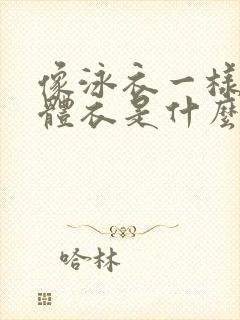 像泳衣一樣
體衣是什麼
哈林